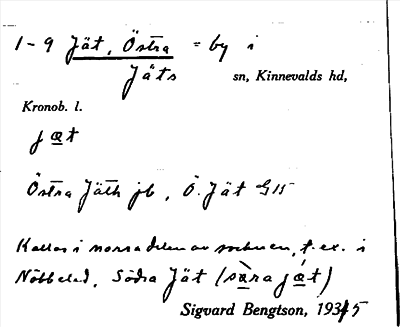 1-9 Jät, Östra = by i
Jäts sn, Kinnevalds hd,
Kronob. l.
jæt
Östra Jäth jb, Ö. Jät G15
Kallas i norra delen av socknen, t.ex. i
Nöbbeled, Södra Jät (særa jæt)
Sigvard Bengtson, 1935